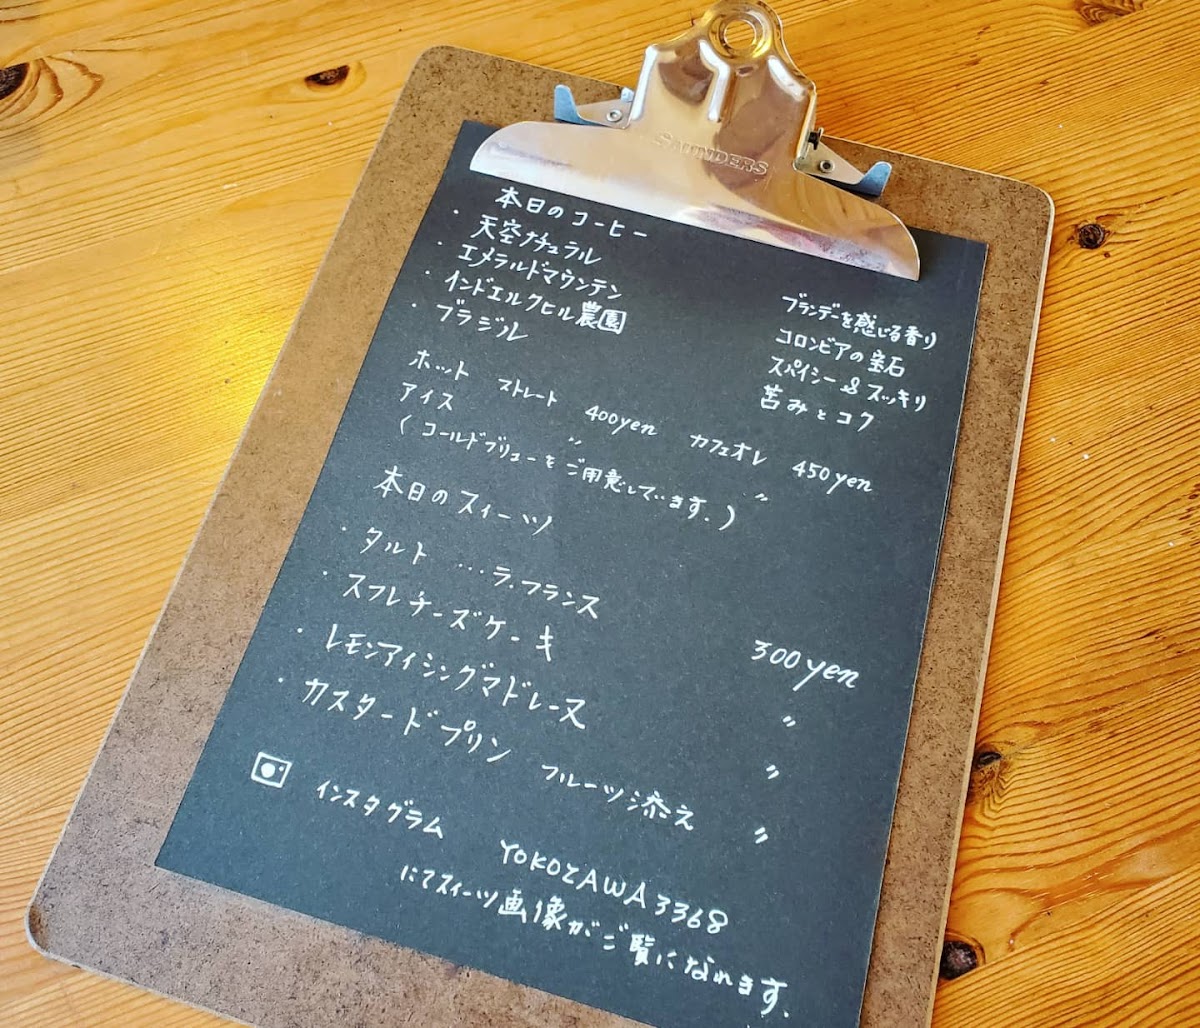 SAUNDERS
本日のコーヒー
・天空ナチュラル ブランデーを感じる香り
・エメラルドマウンテン コロンビアの宝石
・インドエルクヒル農園 スパイシー&スッキリ
・ブラジル 苦みとコク
ホット ストレート 400yen カフェオレ 450yen
アイス 〃 〃
(コールドブリューをご用意しています.)
本日のスイーツ
・タルト …ラ.フランス 300yen
・スフレチーズケーキ 〃
・レモンアイシングマドレーヌ 〃
・カスタードプリン フルーツ添え 〃
インスタグラム YOKOZAWA3368
にてスイーツ画像がご覧になれます.